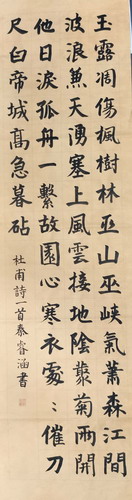 玉露凋傷楓樹林巫山巫峽氣蕭森江間
波浪兼天湧塞上風雲接地陰藂菊兩開
他日淚孤舟一繫故園心寒衣處〻催刀
尺白帝城髙急暮砧
杜甫詩一首秦睿涵書